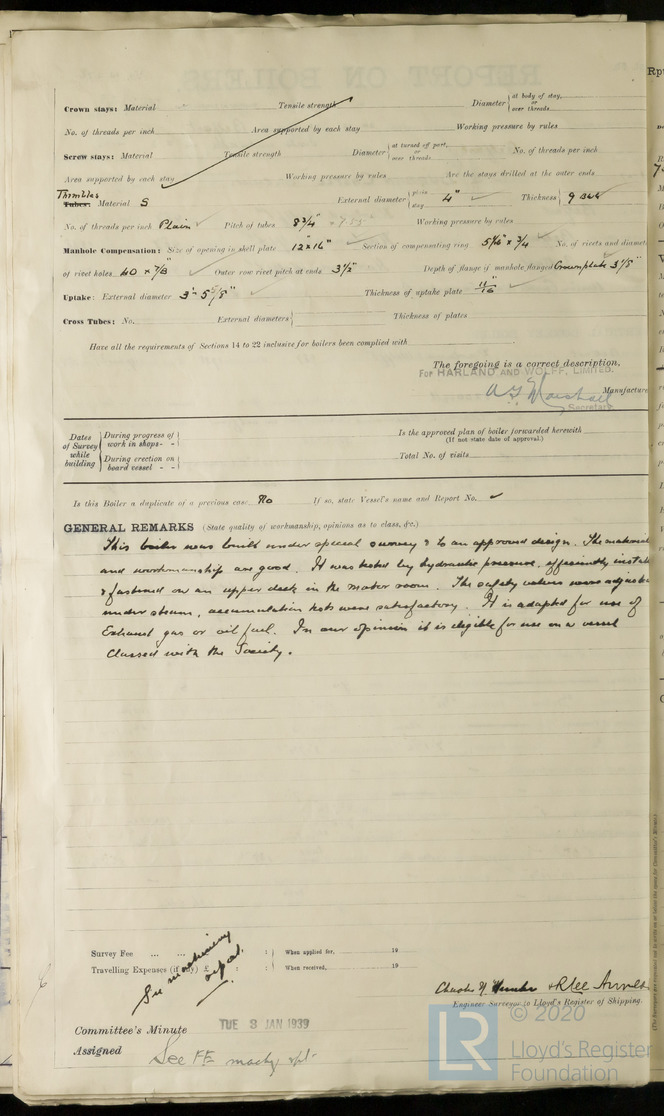 Crown stays: Material Tensile strength Diameter at body of stay, or over threads
No. of threads per inch Area supported by each stay Working pressure by rules
Screw stays: Material Tensile strength Diameter at turned off part, or over threads No. of threads per inch
Area supported by each stay Working pressure by rules Are the stays drilled at the outer ends
Thimbles
Tubes: Material S External diameter plain stay 4" ✓ Thickness 9 BWG
No. of threads per inch Plain ✓ Pitch of tubes 8 3/4" Working pressure by rules
Manhole Compensation: Size of opening in shell plate 12" x 16" ✓ Section of compensating ring ✓ No. of rivets and diamete
of rivet holes 40 x 7/8 ✓ Outer row rivet pitch at ends 3 1/2" Depth of flange if manhole flanged Crown plate 3 1/8"
Uptake: External diameter 3'- 5 5/8" ✓ Thickness of uptake plate 11/16" ✓
Cross Tubes: No. External diameters Thickness of plates
Have all the requirements of Sections 14 to 22 inclusive for boilers been complied with
The foregoing is a correct description,
For HARLAND AND WOLFF, LIMITED.
Marshall Manufacture
Secretary
Dates of Survey while building During progress of work in shops - - Is the approved plan of boiler forwarded herewith (If not state date of approval.)
During erection on board vessel - - Total No. of visits
Is this Boiler a duplicate of a previous case No If so, state Vessel's name and Report No. ✓
GENERAL REMARKS (State quality of workmanship, opinions as to class, &c.)
This boiler was built under special survey & to an approved design. The material
and workmanship are good. It was tested by hydraulic pressure, efficiently instal
& fastened on an upper deck in the motor room. The safety valves were adjuste
under steam, accumulation tests were satisfactory. It is adapted for use of
Exhaust gas or oil fuel. In our opinion it is eligible for use in a vessel
Classed with the Society.
Survey Fee ... ... : When applied for, 19
Travelling Expenses (if any) £ : : When received, 19
See machinery
Charles
Engineer Surveyor to Lloyd's Register of Shipping.
Committee's Minute TUE 3 JAN 1939
Assigned See FE machy rpt.
LR © 2020
Lloyd's Register
Foundation